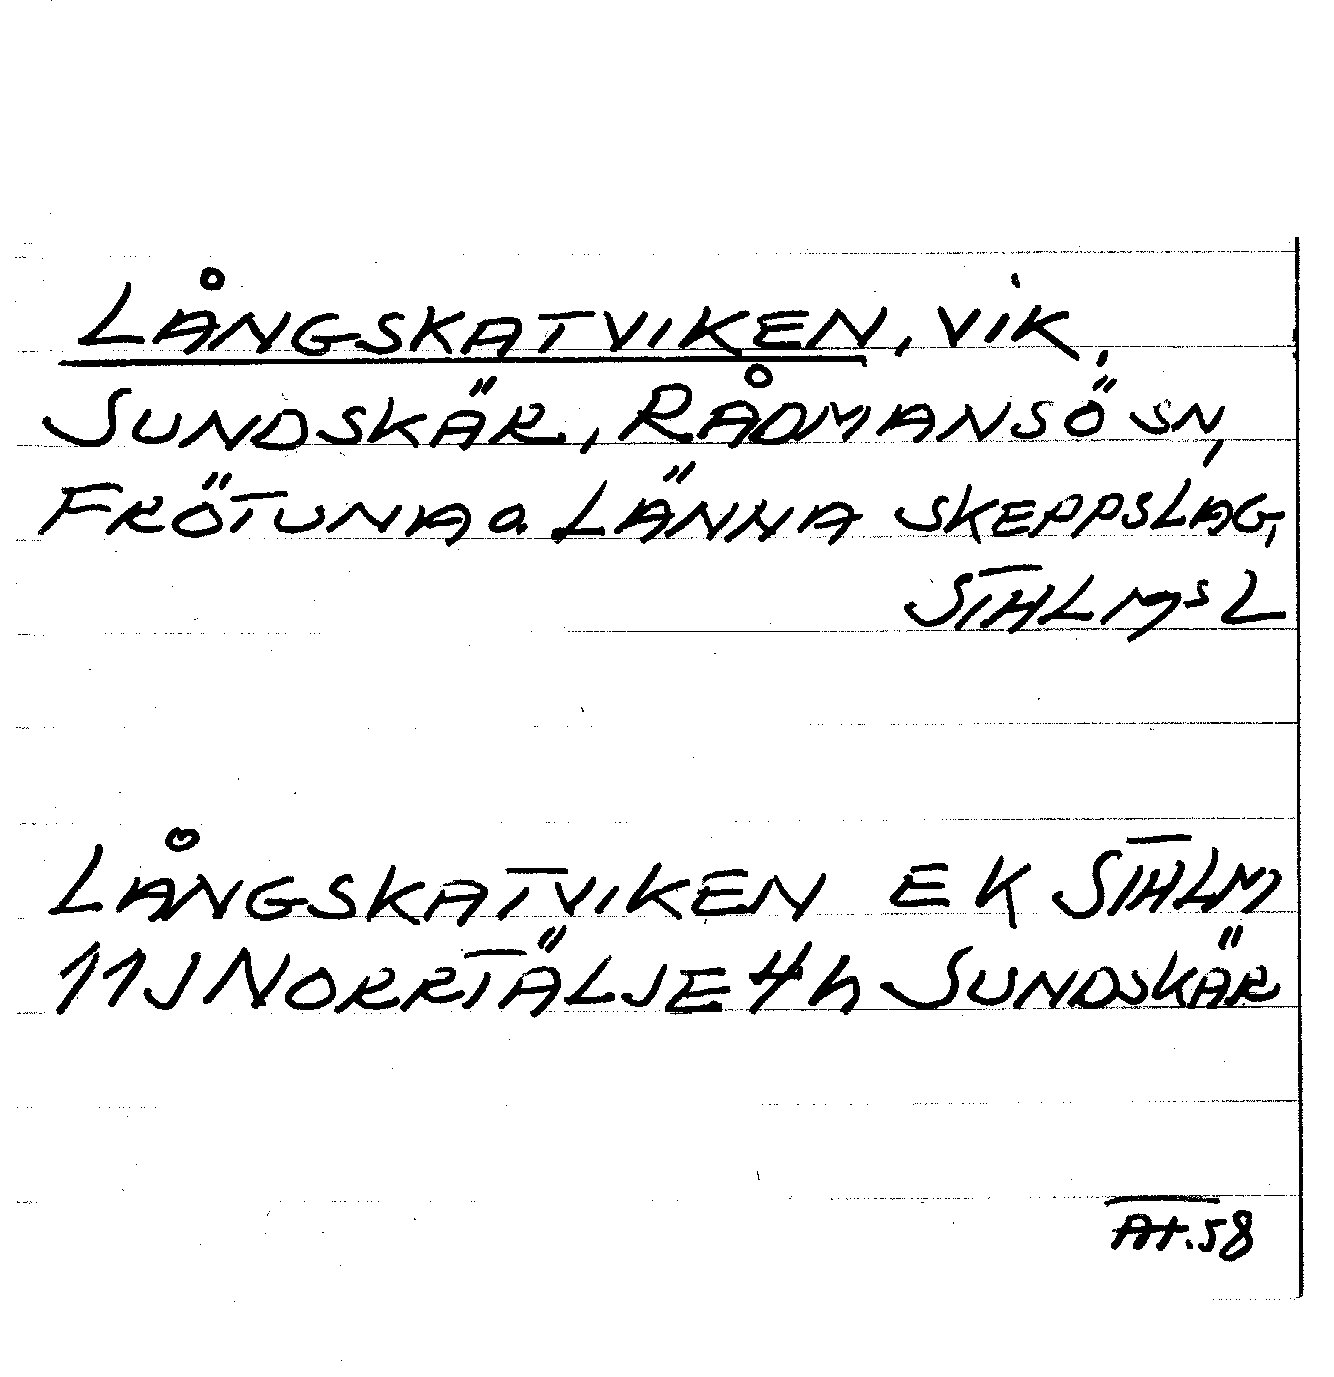 LÅNGSKATVIKEN, VIK,
SUNDSKÄR, RÅDMANSÖ SN,
FRÖTUNA o. LÄNNA SKEPPSLAG,
STHLMS L
LÅNGSKATVIKEN EK STHLM
11J NORRTÄLJE 4h SUNDSKÄR
At.58